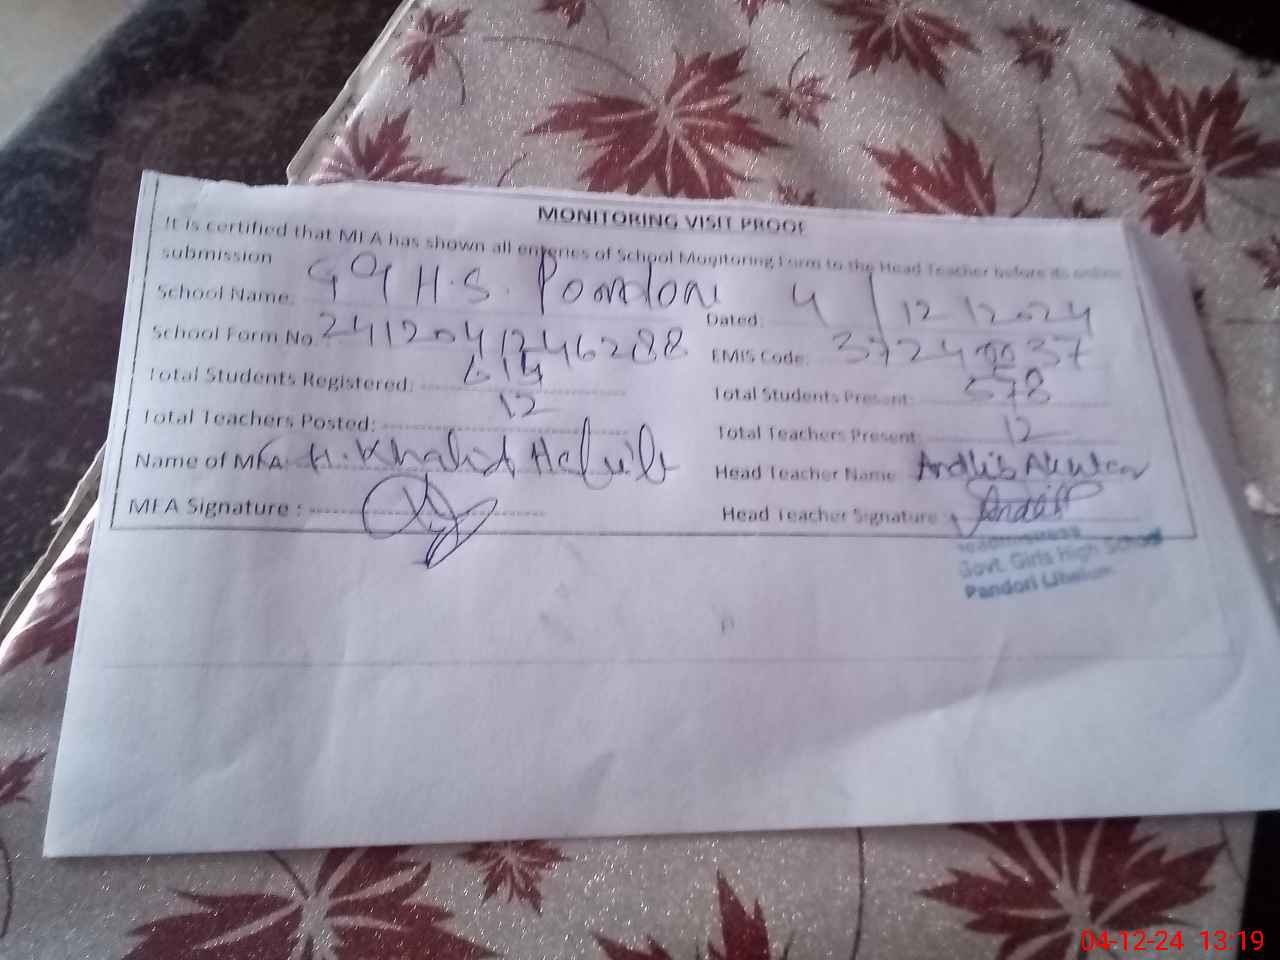 MONITORING VISIT PROOF
It is certified that MEA has shown all enteries of School Monitoring Form to the Head Teacher before its online
submission
School Name: GGH.S. Pandori Dated: 4/12/2024
School Form No. 241204124 6288 EMIS Code: 37240037
Total Students Registered: 614 Total Students Present: 578
Total Teachers Posted: 12 Total Teachers Present: 12
Name of MEA: H. Khalid Head Teacher Name
MEA Signature : Head Teacher Signature :
Headmistress
Govt. Girls High School
Pandori
04-12-24 13:19